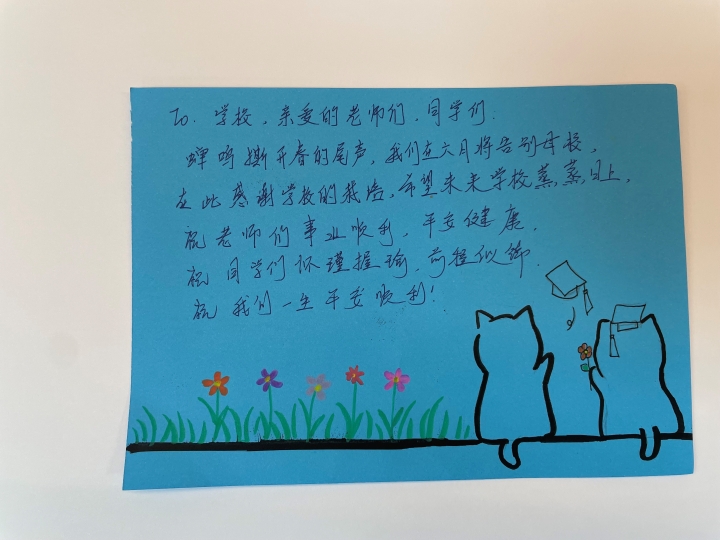 To. 学校，亲爱的老师们，同学们：
蝉鸣撕开春的尾声，我们在六月将告别母校，
在此感谢学校的栽培，希望未来学校蒸蒸日上，
祝老师们事业顺利，平安健康，
祝同学们怀瑾握瑜，前程似锦，
祝我们一生平安顺利！